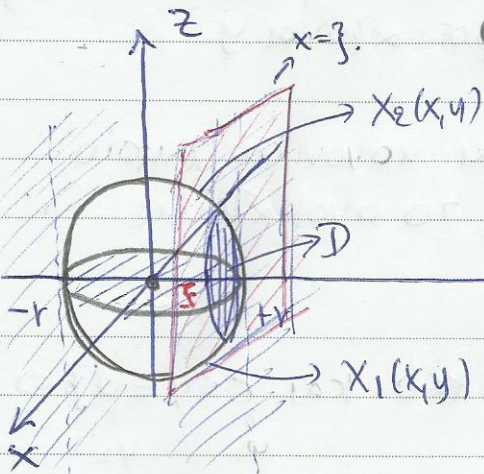 Z
x=ξ.
X₂(x,y)
D
-r
ξ
+r
X₁(x,y)
X